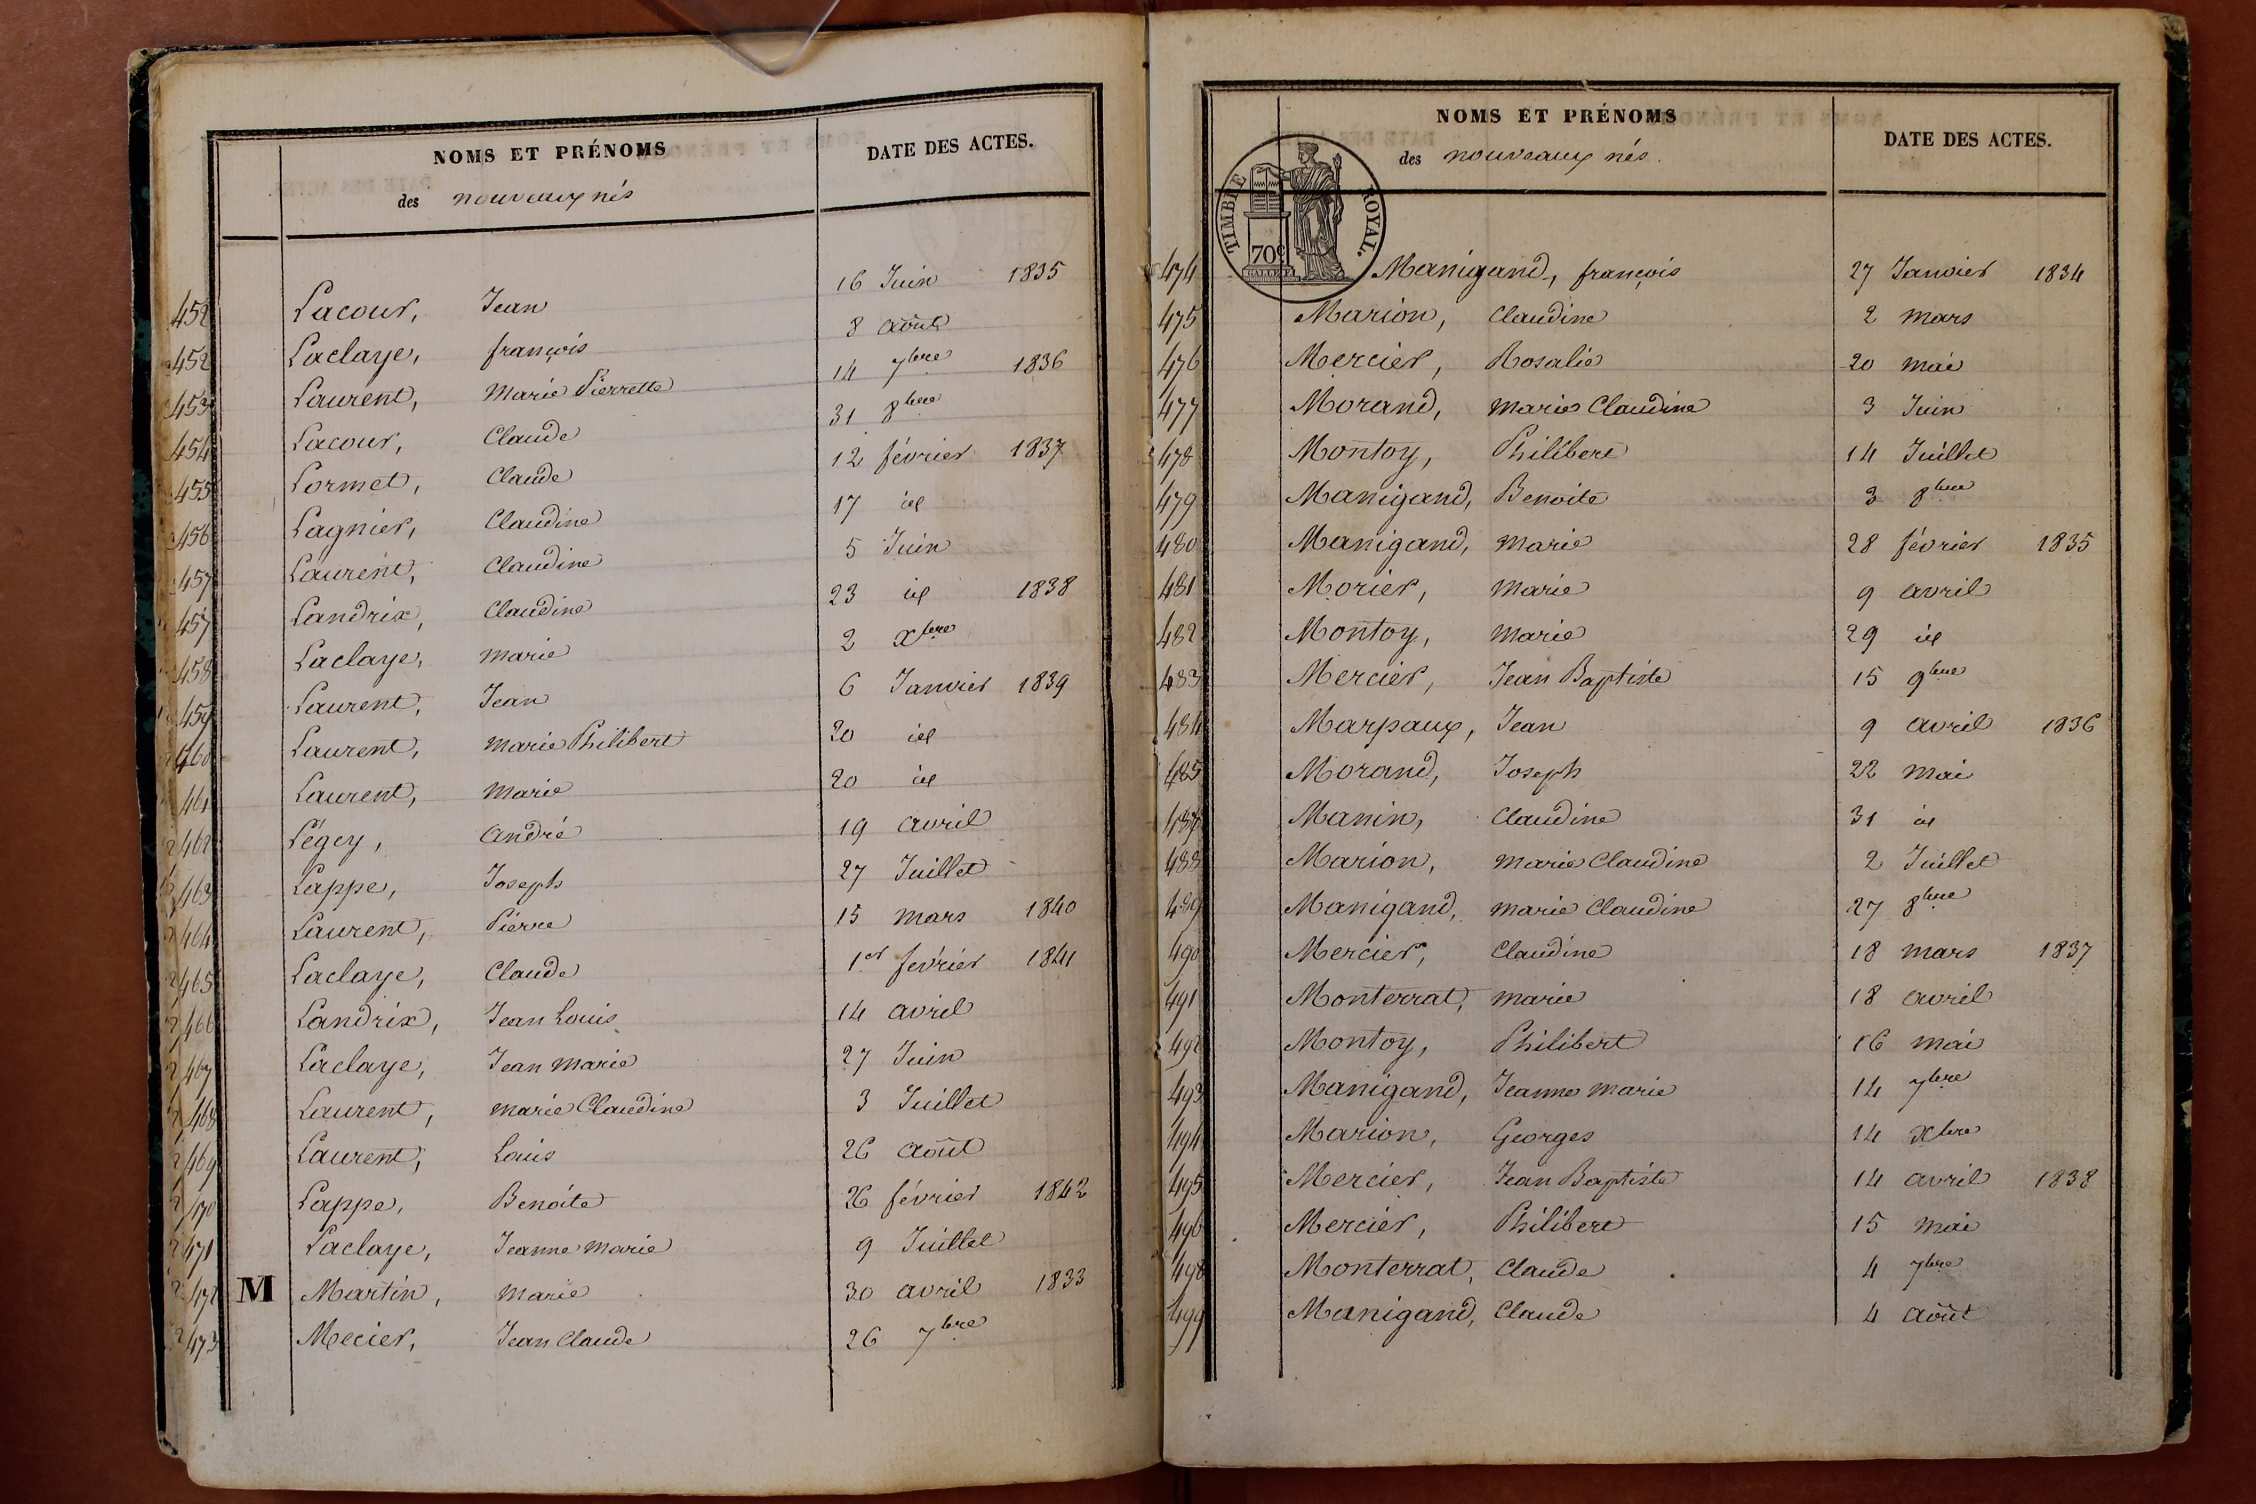 NOMS ET PRÉNOMS
des nouveaux nés
DATE DES ACTES.
452 Lacour, Jean 16 Juin 1835
452 Laclaye, françois 8 août
453 Laurent, Marie Pierrette 14 7bre 1836
454 Lacour, Claude 31 8bre
455 Lormet, Claude 12 février 1837
456 Lagnier, Claudine 17 id
457 Laurent, Claudine 5 Juin
457 Landrix, Claudine 23 id 1838
458 Laclaye, marie 2 xbre
459 Laurent, Jean 6 Janvier 1839
460 Laurent, marie Philibert 20 id
461 Laurent, Marie 20 id
462 Légey, André 19 avril
463 Lappe, Joseph 27 Juillet
464 Laurent, Pierre 15 mars 1840
465 Laclaye, Claude 1er février 1841
466 Landrix, Jean Louis 14 avril
467 Laclaye, Jean marie 27 Juin
468 Laurent, marie Claudine 3 Juillet
469 Laurent, Louis 26 août
470 Lappe, Benoite 26 février 1842
471 Laclaye, Jeanne marie 9 Juillet
472 M Martin, Marie 30 avril 1833
473 Mecier, Jean Claude 26 7bre
NOMS ET PRÉNOMS
des nouveaux nés.
DATE DES ACTES.
TIMBRE ROYAL.
70c
474 Manigand, françois 27 Janvier 1834
475 Marion, Claudine 2 mars
476 Mercier, Rosalie 20 mai
477 Morand, marie Claudine 3 Juin
478 Montoy, Philibert 14 Juillet
479 Manigand, Benoite 3 8bre
480 Manigand, marie 28 février 1835
481 Morier, Marie 9 avril
482 Montoy, Marie 29 id
483 Mercier, Jean Baptiste 15 9bre
484 Marpaux, Jean 9 avril 1836
485 Morand, Joseph 22 mai
487 Manin, Claudine 31 id
488 Marion, marie Claudine 2 Juillet
489 Manigand, marie Claudine 27 8bre
490 Mercier, Claudine 18 mars 1837
491 Monterrat, marie 18 avril
492 Montoy, Philibert 16 mai
493 Manigand, Jeanne marie 14 7bre
494 Marion, Georges 14 xbre
495 Mercier, Jean Baptiste 14 avril 1838
496 Mercier, Philibert 15 mai
498 Monterrat, Claude 4 7bre
499 Manigand, Claude 4 août